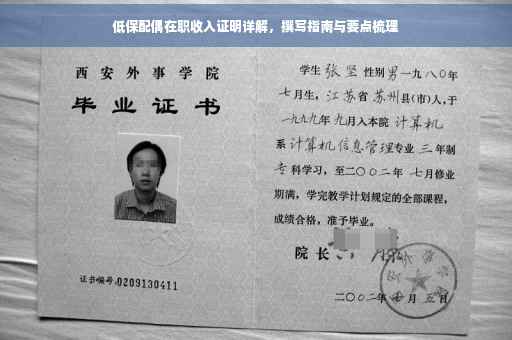 低保配偶在职收入证明详解，撰写指南与要点梳理
西安外事学院
毕业证书
证书编号:0209130411
学生 张坚 性别 男 一九八〇年
七月生，江苏省 苏州县(市)人,于
一九九九年 九月入本院 计算机
系 计算机信息管理专业 三 年制
专科学习，至二〇〇二年 七月修业
期满，学完教学计划规定的全部课程，
成绩合格，准予毕业。
院长
二〇〇二年 七 月 五 日